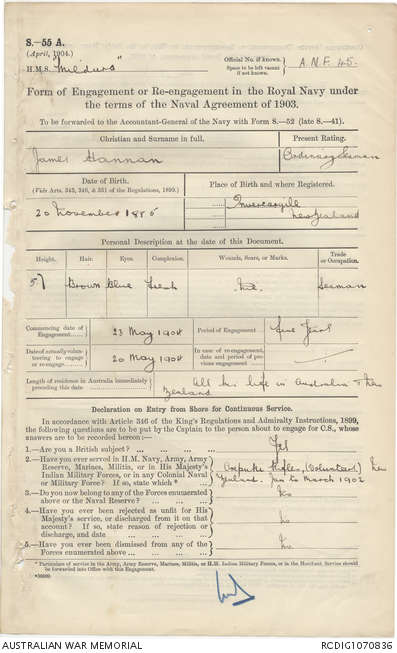 S.—55 A.
(April, 1904.)
H.M.S. "Mildura"
Official No. if known. Space to be left vacant if not known.
A.N.F. 45.
Form of Engagement or Re-engagement in the Royal Navy under
the terms of the Naval Agreement of 1903.
To be forwarded to the Accountant-General of the Navy with Form S.—52 (late S.—41).
Christian and Surname in full.
Present Rating.
James Hannan
Ordinary Seaman
Date of Birth.
(Vide Arts. 345, 346, & 351 of the Regulations, 1899.)
Place of Birth and where Registered.
20 November 1885
Invercargill
New Zealand
Personal Description at the date of this Document.
Height. Hair. Eyes. Complexion. Wounds, Scars, or Marks. Trade or Occupation.
5' 7 Brown Blue Fresh Nil. Seaman
Commencing date of Engagement
23 May 1904
Period of Engagement
five years
Date of actually volunteering to engage or re-engage
20 May 1904
In case of re-engagement, date and period of previous engagement
Length of residence in Australia immediately preceding this date
All his life in Australia & New
Zealand
Declaration on Entry from Shore for Continuous Service.
In accordance with Article 346 of the King's Regulations and Admiralty Instructions, 1899,
the following questions are to be put by the Captain to the person about to engage for C.S., whose
answers are to be recorded herein:—
1.—Are you a British subject? ... Yes
2.—Have you ever served in H.M. Navy, Army, Army
Reserve, Marines, Militia, or in His Majesty's
Indian Military Forces, or in any Colonial Naval
or Military Force? If so, state which *
Rifles, (Volunteers) New
Zealand. to March 1902
3.—Do you now belong to any of the Forces enumerated
above or the Naval Reserve? ... No
4.—Have you ever been rejected as unfit for His
Majesty's service, or discharged from it on that
account? If so, state reason of rejection or
discharge, and date ... No
5.—Have you ever been dismissed from any of the
Forces enumerated above ... No
* Particulars of service in the Army, Army Reserve, Marines, Militia, or H.M. Indian Military Forces, or in the Merchant Service should
be forwarded into Office with this Engagement.
AUSTRALIAN WAR MEMORIAL
RCDIG1070836